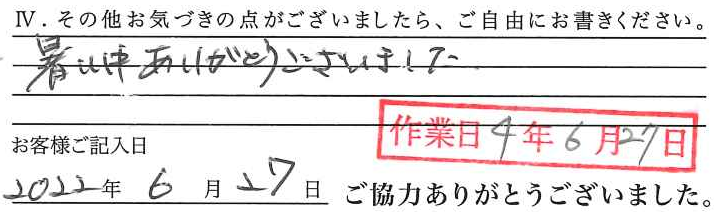 Ⅳ．その他お気づきの点がございましたら、ご自由にお書きください。
暑い中ありがとうございました
作業日4年6月27日
お客様ご記入日
2022年 6 月 27 日 ご協力ありがとうございました。